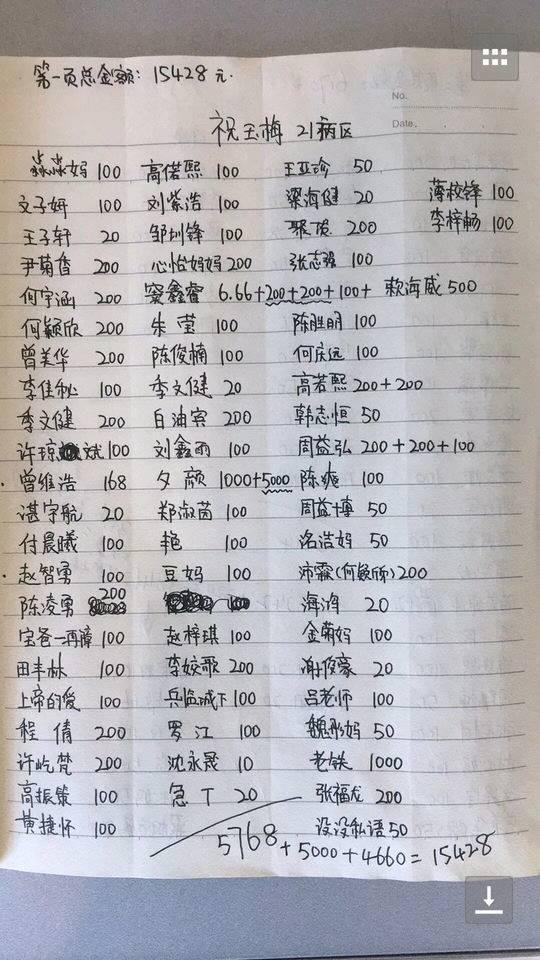 第一页总金额: 15428元.
No.
Date.
祝玉梅 21病区
淼淼妈 100 高偌熙 100 王亚珍 50
文子妍 100 刘紫浩 100 梁海健 20 薄枚锋 100
王子轩 20 邹圳锋 100 聚 200 李梓畅 100
尹菊香 200 心怡妈妈 200 张志强 100
何宇涵 200 窦鑫睿 6.66+200+200+100+ 赖海威 500
何颖欣 200 朱莹 100 陈胜明 100
曾美华 200 陈俊楠 100 何庆远 100
李佳秘 100 季文健 20 高若熙 200+200
季文健 200 白油宾 200 韩志恒 50
许琼斌 100 刘鑫雨 100 周益弘 200+200+100
曾维浩 168 夕颜 1000+5000 陈爽 100
湛宇航 20 郑淑茵 100 周益博 50
付晨曦 100 艳 100 洺洁妈 50
赵智勇 100 豆妈 100 沛霖(何颖欣) 200
陈凌勇 200 海洚 20
宝爸一再障 100 赵梓琪 100 金菊妈 100
田丰林 100 李姣歌 200 谢俊豪 20
上帝的爱 100 兵临城下 100 吕老师 100
程倩 200 罗江 100 魏彤妈 50
许屹梵 200 沈永晟 10 老铁 1000
高振策 100 急丁 20 张福龙 200
黄捷怀 100 没没私语 50
5768+5000+4660=15428